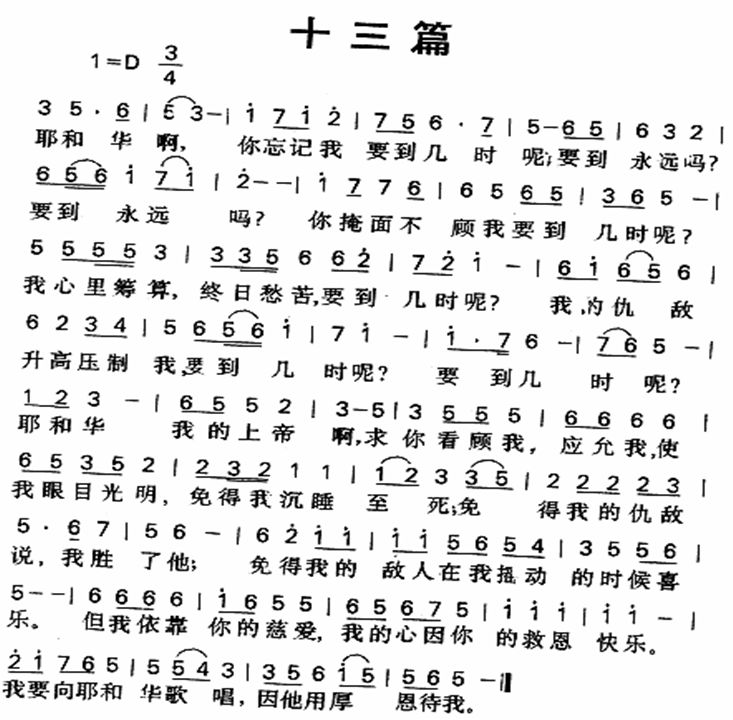 十三篇
1=D 3/4
3 5 · 6 | 5 3 – | i 7 i 2 | 7 5 6 · 7 | 5 – 6 5 | 6 3 2 |
耶和 华 啊, 你忘记我 要到几 时 呢;要到 永远吗?
6 5 6 i 7 i | 2 – – | i 7 7 6 | 6 5 6 5 | 3 6 5 – |
要到 永远 吗? 你掩面不 顾我要到 几时呢?
5 5 5 5 5 3 | 3 3 5 6 6 2 | 7 2 i – | 6 i 6 5 6 |
我心里筹算, 终日愁苦,要到 几时呢? 我,的仇 敌
6 2 3 4 | 5 6 5 6 i | 7 i – | i · 7 6 – | 7 6 5 – |
升高压制 我,要到 几 时呢? 要 到几 时 呢?
1 2 3 – | 6 5 5 2 | 3 – 5 | 3 5 5 5 | 6 6 6 6 |
耶和华 我的上帝 啊,求你看顾我, 应允我,使
6 5 3 5 2 | 2 3 2 1 1 | 1 2 3 3 5 | 2 2 2 2 3 |
我眼目光明, 免得我沉睡 至 死;免 得我的仇敌
5 · 6 7 | 5 6 – | 6 2 i i | i i 5 6 5 4 | 3 5 5 6 |
说, 我胜 了他; 免得我的 敌人在我摇动 的时候喜
5 – – | 6 6 6 6 | i 6 5 5 | 6 5 6 7 5 | i i i | i i – |
乐。 但我依靠 你的慈爱, 我的心因你 的救恩 快乐。
2 i 7 6 5 | 5 5 4 3 | 3 5 6 i 5 | 5 6 5 –
我要向耶和 华歌 唱, 因他用厚 恩待我。